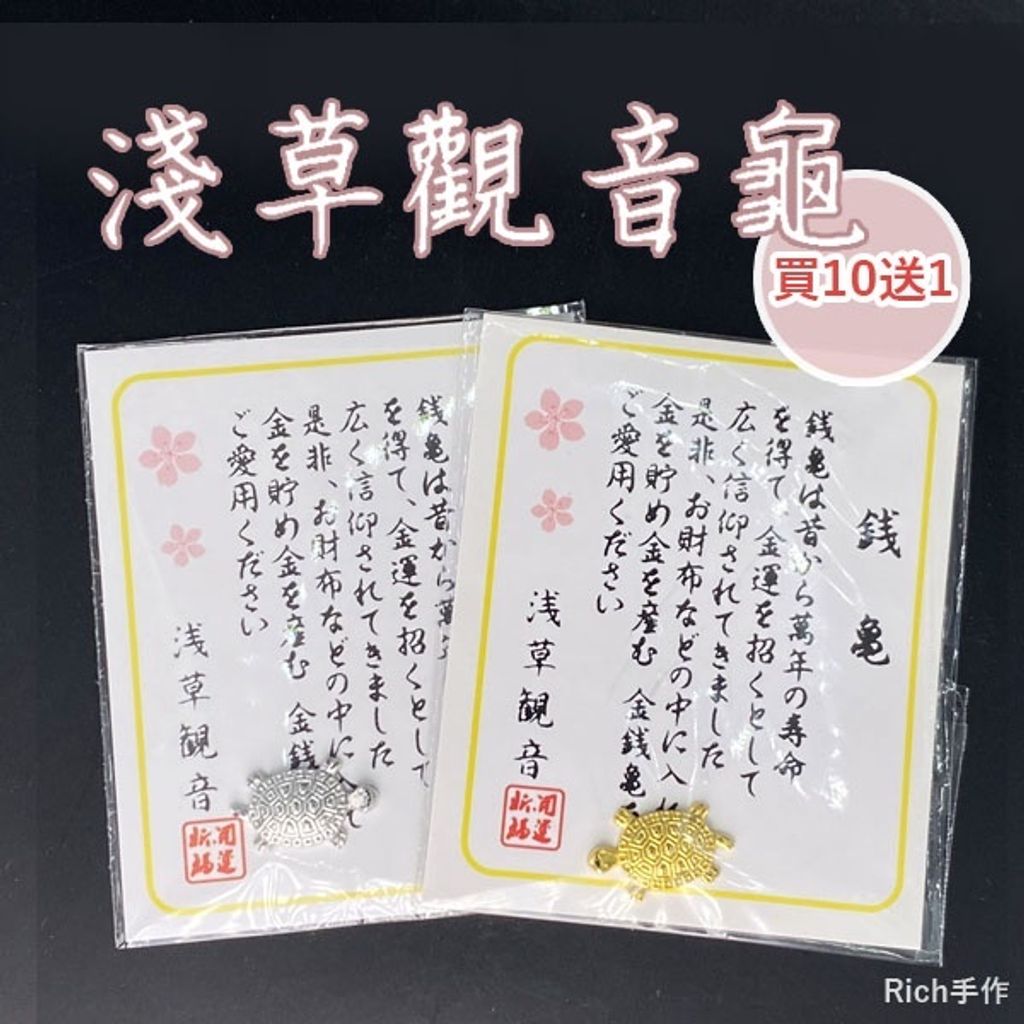 淺草觀音龜
買10送1
銭亀は昔から萬
を得て、金運を招くとして
広く信仰されてきました
是非、お財布などの中に入
金を貯め金を産む 金銭
ご愛用ください
浅草観音
開運
祈福
銭亀
銭亀は昔から萬年の寿命
を得て、金運を招くとして
広く信仰されてきました
是非、お財布などの中に入れ
金を貯め金を産む 金銭亀を
ご愛用ください
浅草観音
開運
祈福
Rich手作